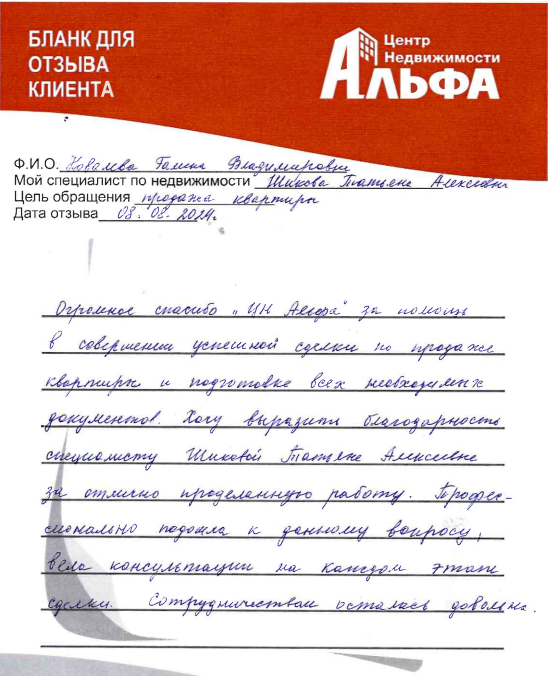 БЛАНК ДЛЯ
ОТЗЫВА
КЛИЕНТА
Центр
Недвижимости
АЛЬФА
Ф.И.О. Ковалева Галина Владимировна
Мой специалист по недвижимости Шикова Татьяна Алексеевна
Цель обращения продажа квартиры
Дата отзыва 08.08.2024г.
Огромное спасибо "ЦН Альфа" за помощь
в совершении успешной сделки по продаже
квартиры и подготовке всех необходимых
документов. Хочу выразить благодарность
специалисту Шиковой Татьяне Алексеевне
за отлично проделанную работу. Профес-
сионально подошла к данному вопросу,
вела консультации на каждом этапе
сделки. Сотрудничеством осталась довольна.